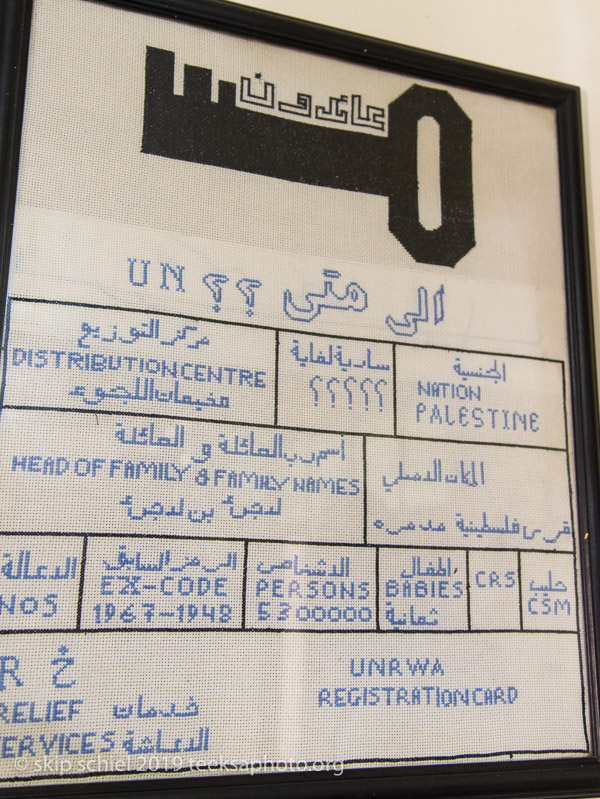 عائدون
الى متى ؟؟ UN
مركز التوزيع
DISTRIBUTION CENTRE
مخيمات اللجوء
سارية لغاية
؟؟؟؟؟
الجنسية
NATION
PALESTINE
اسم رب العائلة و العائلة
HEAD OF FAMILY & FAMILY NAMES
لاجئ بن لاجئ
المكان الاصلي
قرى فلسطينية مدمره
الاعالة
NOS
الرمز السابق
EX-CODE
1967-1948
الاشخاص
PERSONS
5300000
الاطفال
BABIES
ثمانية
CRS
حليب
CSM
R خ
RELIEF خدمات
SERVICES الاعاشة
UNRWA
REGISTRATION CARD
© skip schiel 2019 teeksaphoto.org